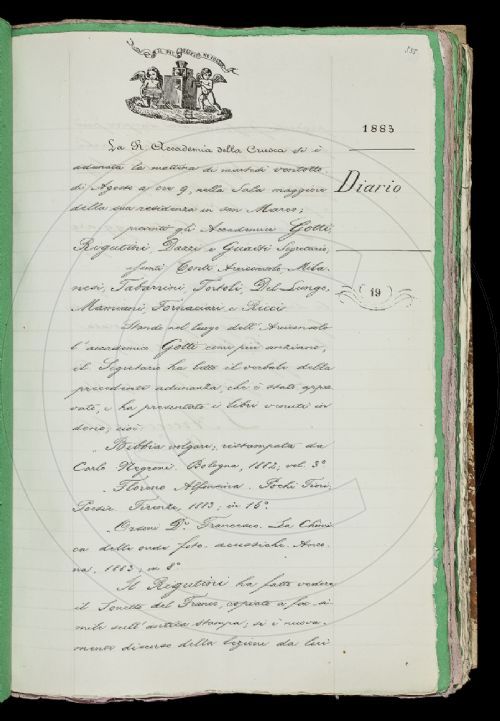 IL PIÙ BEL FIOR NE COGLIE
1883
Diario
19
La R. Accademia della Crusca si è
adunata la mattina di martedì ventotto
di Agosto a ore 9, nella Sala maggiore
della sua residenza in San Marco;
presenti gli Accademici Gotti
Rigutini Dazzi e Guasti Segretario,
assenti Conti Arciconsolo Mila
nesi, Tabarrini Tortoli, Del-Lungo,
Mamiani Fornaciari e Ricci
Stando nel luogo dell'Arciconsolo
l'accademico Gotti come più anziano,
il Segretario ha letto il verbale della
precedente adunanza, che è stato appro
vato, e ha presentato i libri venuti in
dono; cioè
Bibbia volgare, ristampata da
Carlo Negroni. Bologna, 1882, vol. 3º
Floreno Alfonsina. Pochi Fiori,
Poesie. Firenze, 1883; in 16º
Orsoni Dr. Francesco. La Chimi
ca delle onde foto-acustiche. Anco
na, 1883; in 8º
Il Rigutini ha fatto vedere
il Sonetto del Franco, copiato a fac si
mile sull'antica stampa; si è nuova
mente discorso della lezione da lui